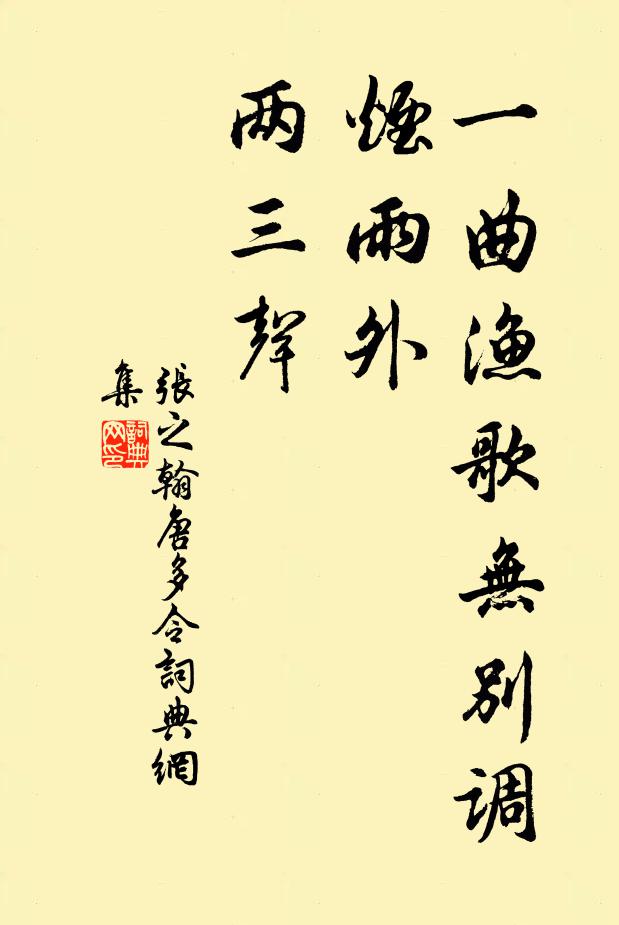 一曲漁歌無別调
煙雨外
两三聲
張之翰唐多令詞典網
集
詞典
网印